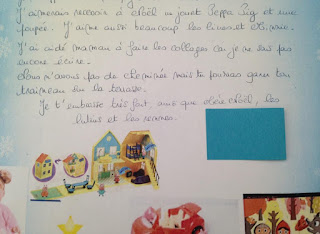 J'aimerais recevoir à Noël un jouet Peppa Pig et une
poupée. J'aime aussi beaucoup les livres et
J'ai aidé maman à faire les collages car je ne sais pas
encore écrire.
Nous n'avons pas de cheminée mais tu pourras garer ton
traineau sur la terasse.
Je t'embrasse très fort, ainsi que Noël, les
lutins et les rennes.